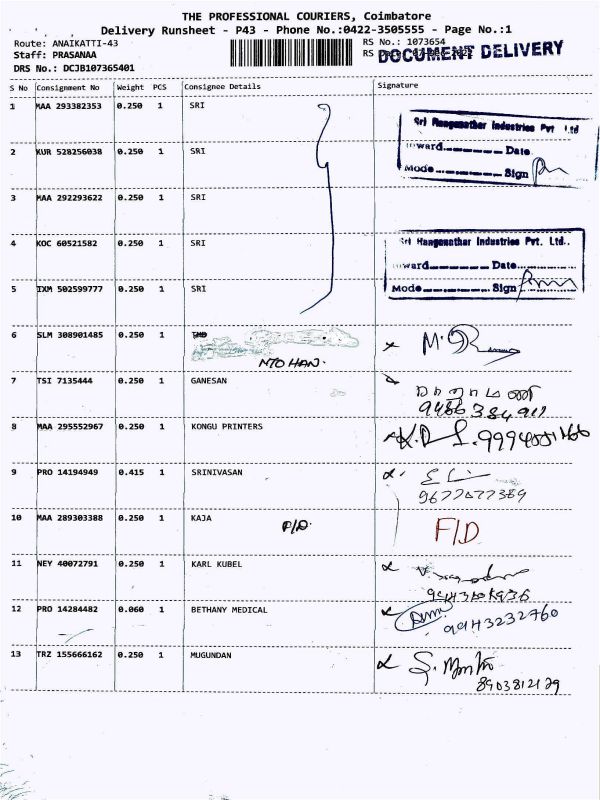 THE PROFESSIONAL COURIERS, Coimbatore
Delivery Runsheet - P43 - Phone No.:0422-3505555 - Page No.:1
Route: ANAIKATTI-43
RS No.: 1073654
Staff: PRASANAA
RS
DOCUMENT DELIVERY
DRS No.: DCJB107365401
S No Consignment No Weight PCS Consignee Details Signature
1 MAA 293382353 0.250 1 SRI
Sri Ranganathar Industries Pvt Ltd
Inward Date
Mode Sign
2 KUR 528256038 0.250 1 SRI
3 MAA 292293622 0.250 1 SRI
4 KOC 60521582 0.250 1 SRI
Sri Ranganathar Industries Pvt. Ltd..
Inward Date
Mode Sign
5 IXM 502599777 0.250 1 SRI
6 SLM 308901485 0.250 1
MOHAN.
7 TSI 7135444 0.250 1 GANESAN
8 MAA 295552967 0.250 1 KONGU PRINTERS
9 PRO 14194949 0.415 1 SRINIVASAN
9677077389
10 MAA 289303388 0.250 1 KAJA F/D. F/D.
11 NEY 40072791 0.250 1 KARL KUBEL
12 PRO 14284482 0.060 1 BETHANY MEDICAL
9943232760
13 TRZ 155666162 0.250 1 MUGUNDAN
8903812129